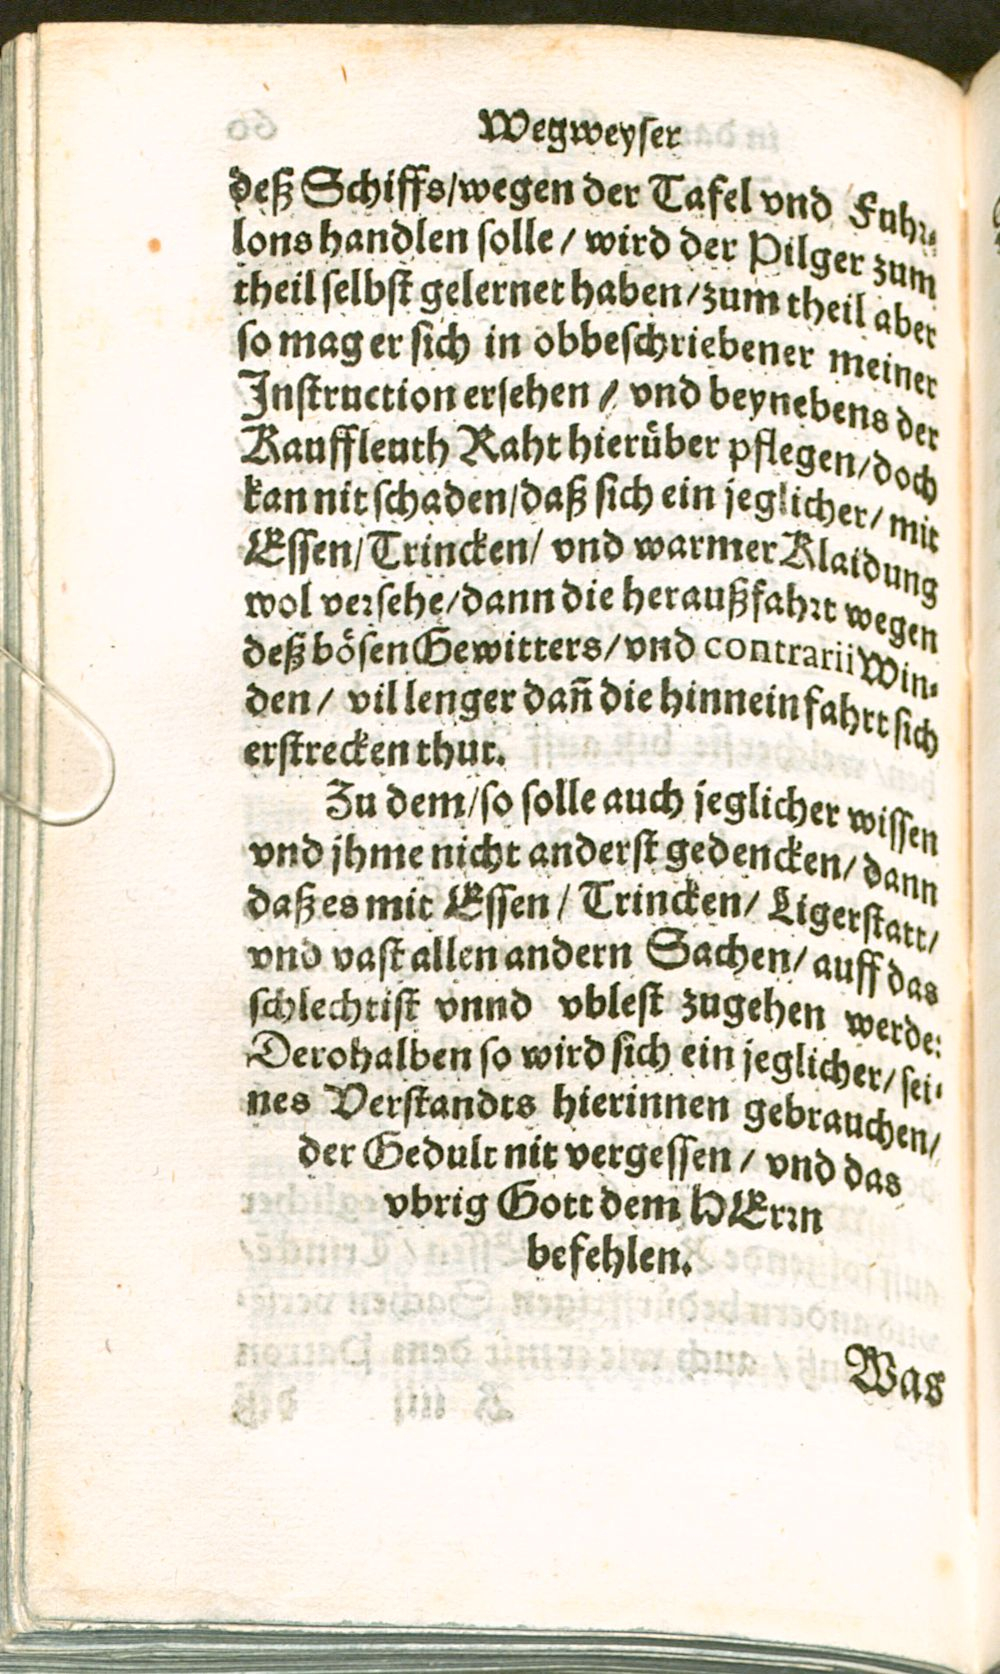 Wegweyser
deß Schiffs/wegen der Tafel vnd Fuhr⸗
lons handlen solle / wird der Pilger zum
theil selbst gelernet haben/zum theil aber
so mag er sich in obbeschriebener meiner
Instruction ersehen / vnd beynebens der
Kauffleuth Raht hierüber pflegen/doch
kan nit schaden/daß sich ein jeglicher/ mit
Essen/Trincken/ vnd warmer Klaidung
wol versehe/dann die heraußfahrt wegen
deß bösen Gewitters/vnd contrarii Win⸗
den/ vil lenger dañ die hinneinfahrt sich
erstrecken thut.
Zu dem/so solle auch jeglicher wissen
vnd jhme nicht anderst gedencken/dann
daß es mit Essen / Trincken/ Ligerstatt/
vnd vast allen andern Sachen/ auff das
schlechtist vnnd vblest zugehen werde:
Derohalben so wird sich ein jeglicher/sei⸗
nes Verstandts hierinnen gebrauchen/
der Gedult nit vergessen / vnd das
vbrig Gott dem HErrn
befehlen.
Was